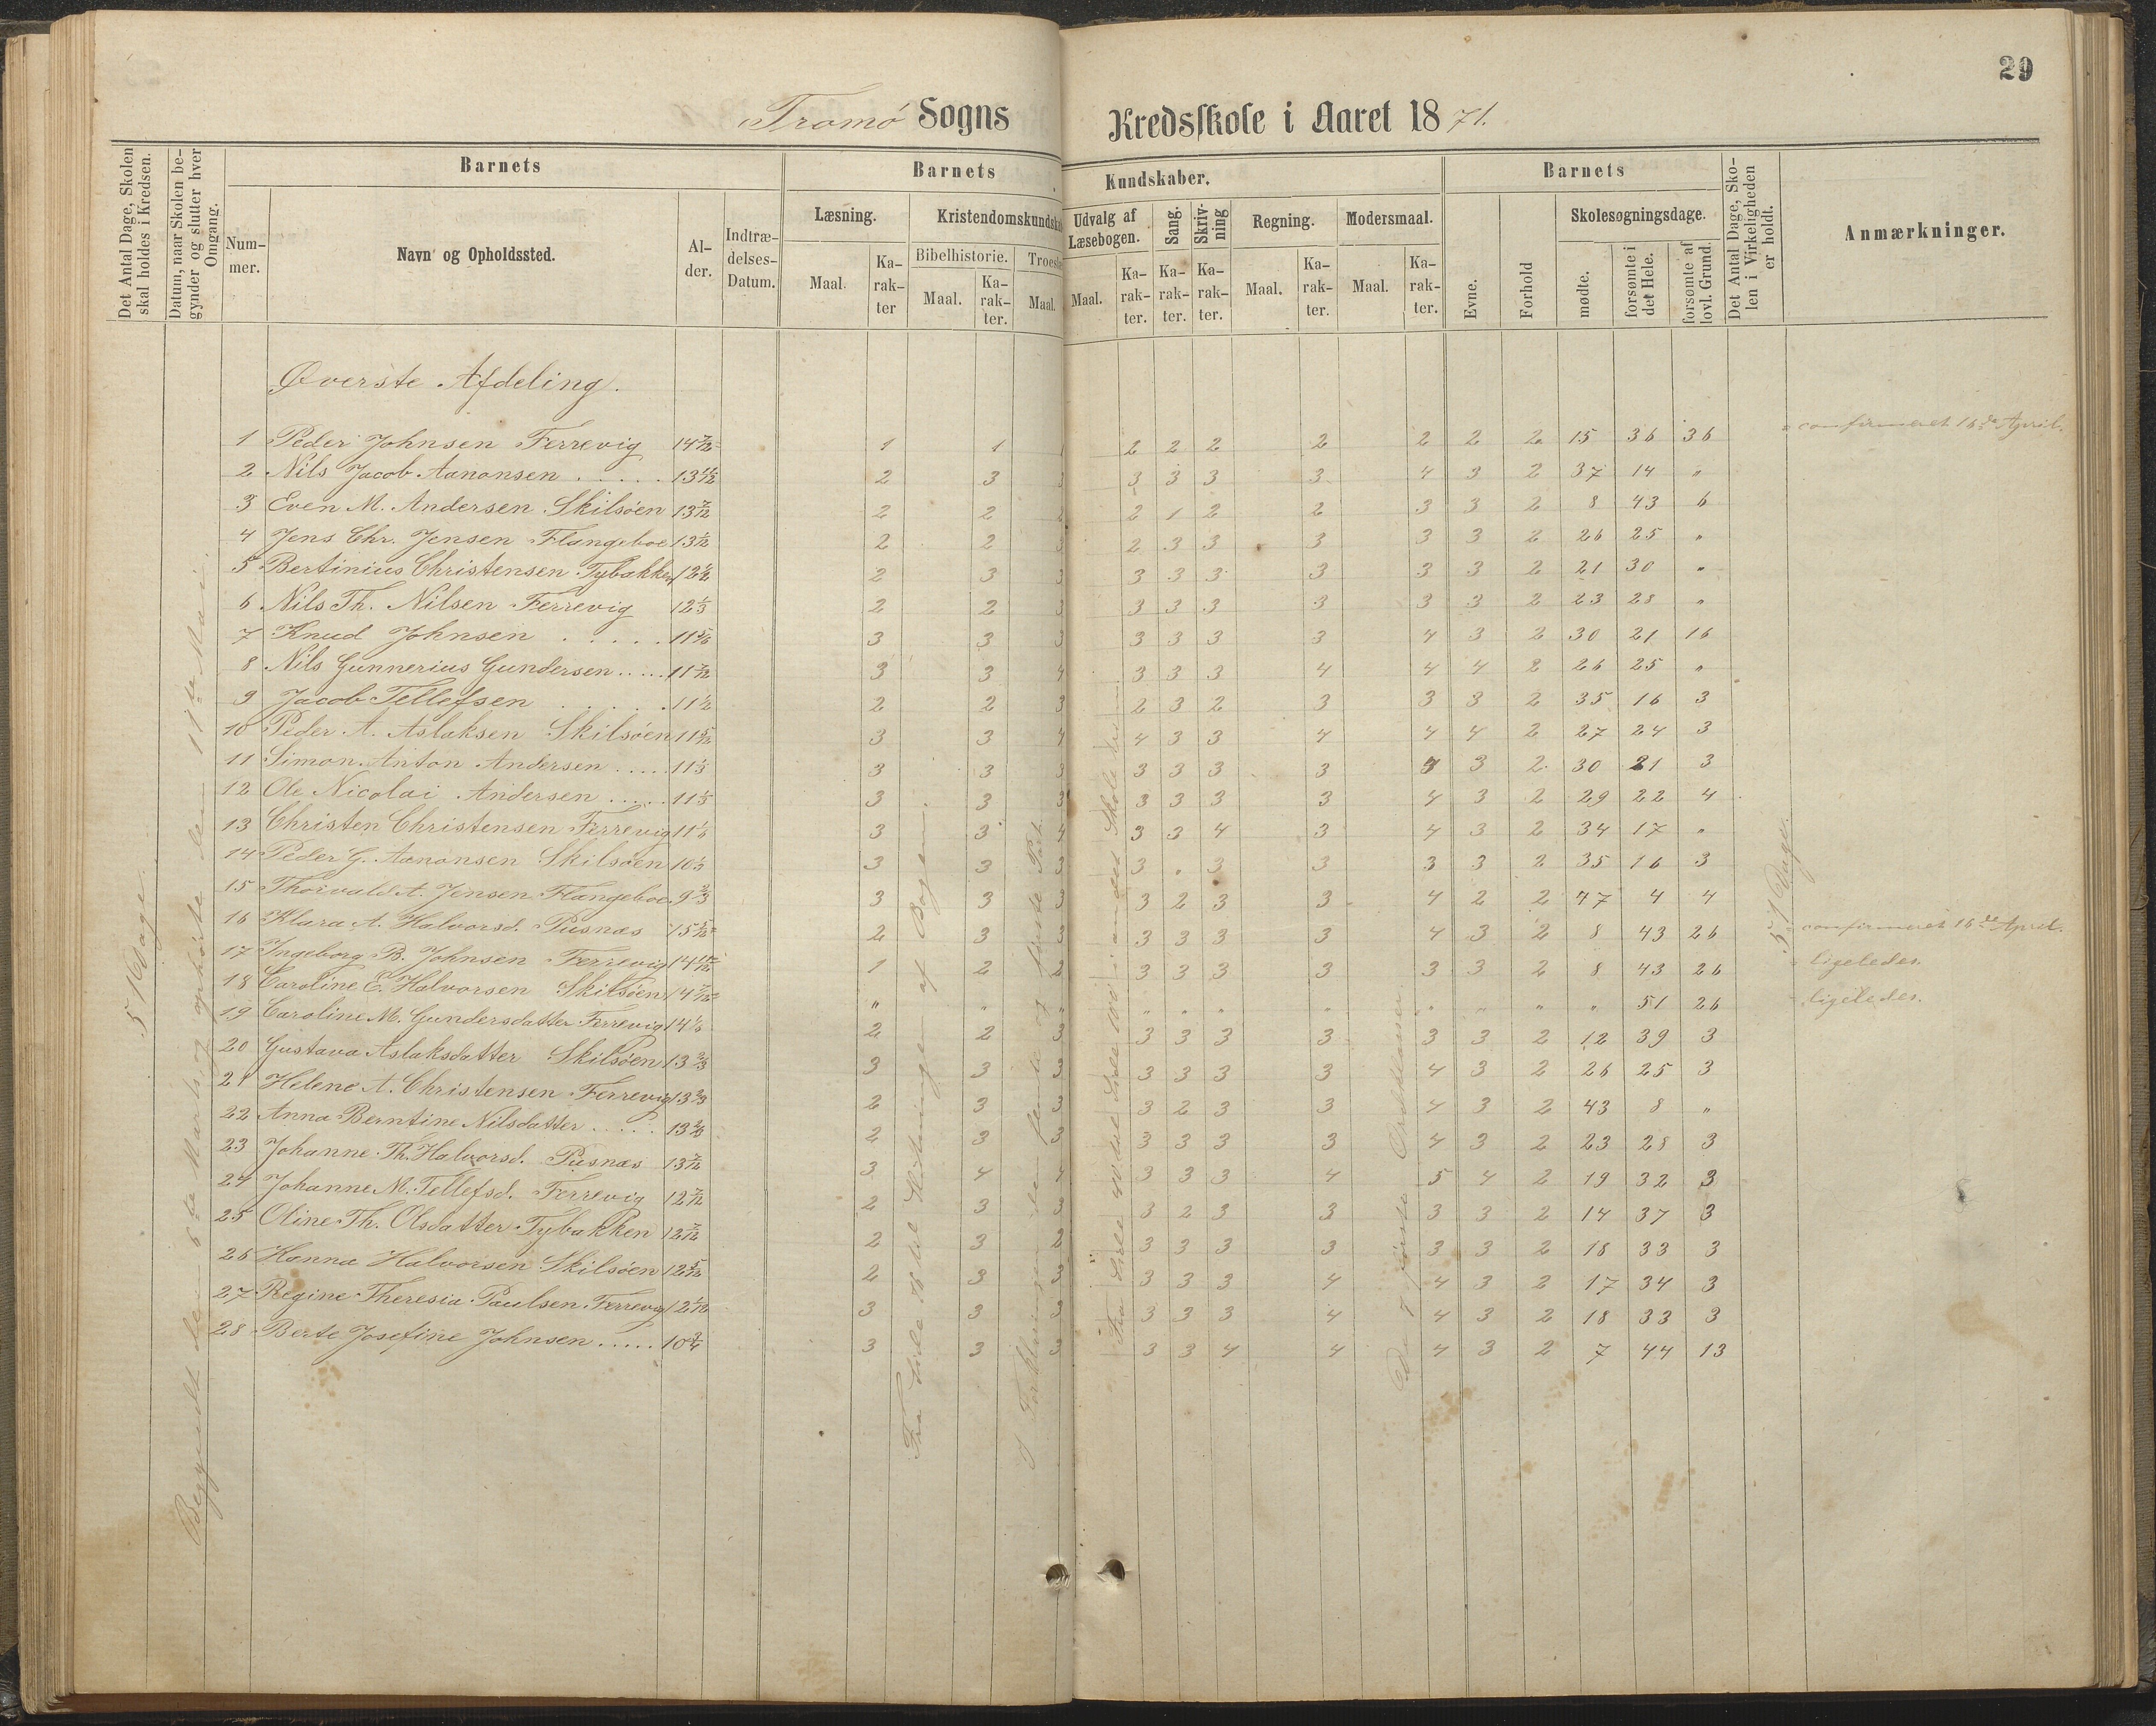 29
Tromö Sogns Kredsskole i Aaret 1871.
Det Antal Dage, Skolen skal holdes i Kredsen.
Datum, naar Skolen begynder og slutter hver Omgang.
Barnets
Barnets Kundskaber.
Barnets
Det Antal Dage, Skolen i Virkeligheden er holdt.
Anmærkninger.
Nummer.
Navn og Opholdssted.
Alder.
Indtrædelses-Datum.
Læsning.
Kristendomskundsk
Udvalg af Læsebogen.
Sang.
Skrivning
Regning.
Modersmaal.
Evne.
Forhold
Skolesøgningsdage.
Bibelhistorie.
Troes
Maal. Karakter Maal. Karakter. Maal. Maal. Karakter. Karakter. Karakter. Maal. Karakter. Maal. Karakter.
mødte.
forsømte i det Hele.
forsømte af lovl. Grund.
Øverste Afdeling.
1 Peder Johnsen Ferrevig 14 7/12 1 1 1 2 2 2 2 2 2 2 15 36 36 confirmeret 16de April.
2 Nils Jacob Aanonsen . . . . . 13 11/12 2 3 3 3 3 3 3 4 3 2 37 14 "
3 Even M. Andersen Skilsöen 13 7/12 2 2 2 2 1 2 2 3 3 2 8 43 6
4 Jens Chr. Jensen Flangeboe 13 1/12 2 2 3 2 3 3 3 3 3 2 26 25 "
5 Bertinius Christensen Tybakken 12 1/2 2 3 3 3 3 3 3 3 3 2 21 30 "
6 Nils Th. Nilsen Ferrevig 12 1/3 2 2 3 3 3 3 3 3 3 2 23 28 "
7 Knud Johnsen . . . . . 11 5/6 3 3 3 3 3 3 3 4 3 2 30 21 16
8 Nils Gunnerius Gundersen . . . . . 11 7/12 3 3 4 3 3 3 4 4 4 2 26 25 "
9 Jacob Tellefsen . . . . . 11 1/2 2 2 3 2 3 2 3 3 3 2 35 16 3
10 Peder A. Aslaksen Skilsöen 11 5/12 3 3 4 4 3 3 4 4 4 2 27 24 3
11 Simon Anton Andersen . . . . . 11 1/3 3 3 3 3 3 3 3 3 3 2 30 21 3
12 Ole Nicolai Andersen . . . . . 11 1/3 3 3 3 3 3 3 3 4 3 2 29 22 4
13 Christen Christensen Ferrevig 11 1/6 3 3 4 3 3 4 3 4 3 2 34 17 "
14 Peder G. Aanonsen Skilsöen 10 1/3 3 3 3 3 " 3 3 3 3 2 35 16 3
15 Thorvald A. Jensen Flangeboe 9 2/3 3 3 3 3 2 3 3 4 2 2 47 4 4
16 Klara A. Halvorsd. Pusnæs 15 5/12 2 3 3 3 3 3 3 4 3 2 8 43 26 confirmeret 16de April.
17 Ingeborg B. Johnsen Ferrevig 14 11/12 1 2 2 3 3 3 3 3 3 2 8 43 26 ligeledes.
18 Caroline E. Halvorsen Skilsöen 14 7/12 " " " " " " " " " " " 51 26 ligeledes.
19 Caroline M. Gundersdatter Ferrevig 14 1/6 2 2 3 3 3 3 3 3 3 2 12 39 3
20 Gustava Aslaksdatter Skilsöen 13 2/3 3 3 3 3 3 3 3 4 3 2 26 25 3
21 Helene A. Christensen Ferrevig 13 2/3 2 3 3 3 2 3 3 4 3 2 43 8 "
22 Anna Berntine Nilsdatter . . . . . 13 2/3 2 3 3 3 3 3 3 4 3 2 23 28 3
23 Johanne Th. Halvorsd. Pusnæs 13 7/12 3 4 4 3 3 3 4 5 4 2 19 32 3
24 Johanne M. Tellefsd. Ferrevig 12 7/12 2 3 3 3 2 3 3 3 3 2 14 37 3
25 Oline Th. Olsdatter Tybakken 12 7/12 2 3 2 3 3 3 3 3 3 2 18 33 3
26 Hanna Halvorsen Skilsöen 12 5/12 2 3 3 3 3 3 4 4 3 2 17 34 3
27 Regine Theresia Paulsen Ferrevig 12 1/12 3 3 3 3 3 3 4 4 3 2 18 33 3
28 Berte Josefine Johnsen . . . . . 10 3/4 3 3 3 3 3 4 4 4 3 2 7 44 13
51 Dage.
Begyndt den 6te Marts og ophörte den 11te Mai.
Fra Side 78 til Slutningen af Bogen.
I Forklaringen de fem og förste Part.
Fra Side til Side 100 i
De 7 förste Ordklasser
51 Dage.